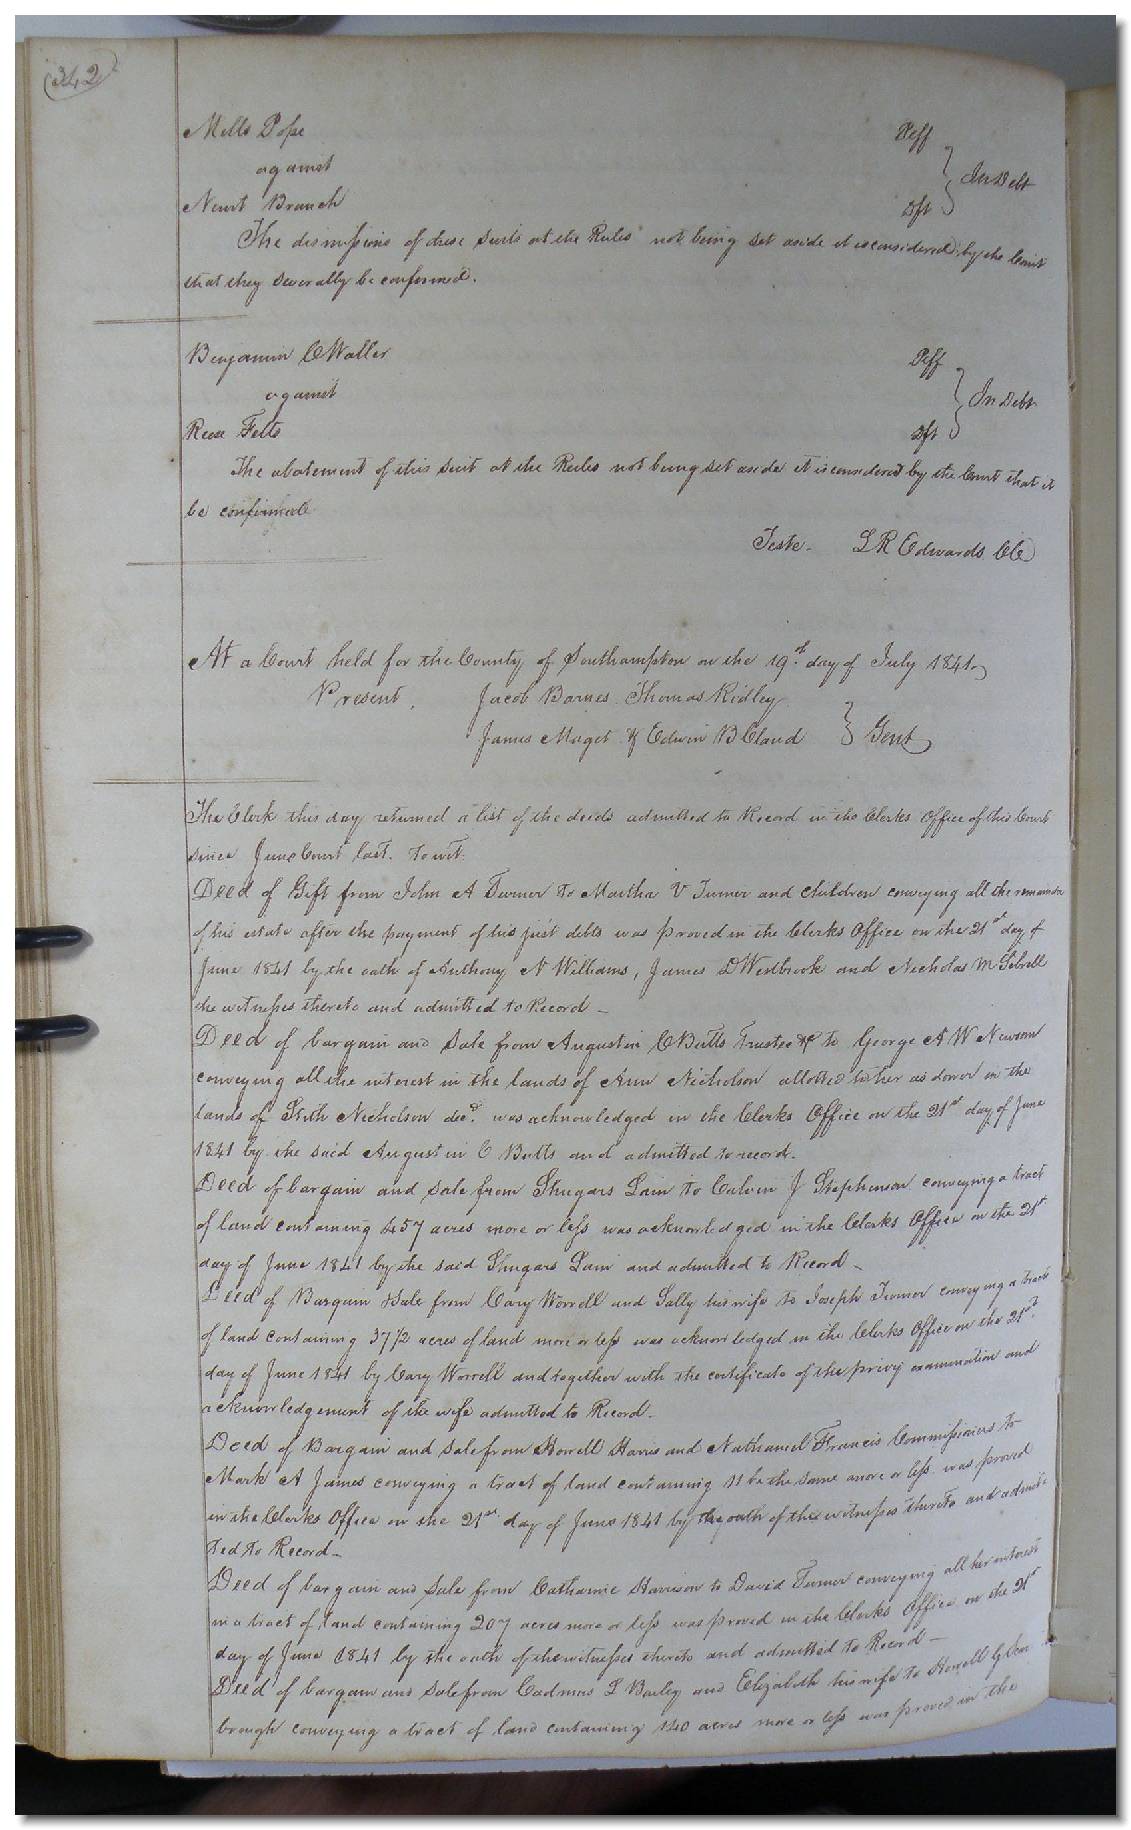 (342)
Mills Pope Plff
against } In Debt
Newit Branch Dft
The dismissions of these suits at the Rules not being set aside it is considered by the Court
that they severally be confirmed.
Benjamin C Waller Plff
against } In Debt
Reca Felts Dft
The abatement of this suit at the Rules not being set aside it is considered by the Court that it
be confirmed
Teste. L R Edwards CC
At a Court held for the County of Southampton on the 19th. day of July 1841
Present, Jacob Barnes Thomas Ridley
James Maget & Edwin B Claud } Gent
The Clerk this day returned a list of the deeds admitted to Record in the Clerks Office of this Court
since June Court last. Towit:
Deed of Gift from John A Turner to Martha V Turner and children conveying all the remainder
of his estate after the payment of his just debts was proved in the Clerks Office on the 21st day of
June 1841 by the oath of Anthony N Williams, James D Westbrook and Nicholas M Sebrell
the witnesses thereto and admitted to Record —
Deed of bargain and Sale from Augustin C Butts Trustee &c to George A W Newsom
conveying all the interest in the lands of Ann Nicholson allotted to her as dower in the
lands of Stith Nicholson decd. was acknowledged in the Clerks Office on the 21st day of June
1841 by the said Augustin C Butts and admitted to record.
Deed of bargain and sale from Shugars Lain to Calvin J Stephenson conveying a tract
of land containing 457 acres more or less was acknowledged in the Clerks Office on the 21st
day of June 1841 by the said Shugars Lain and admitted to Record —
Deed of Bargain & Sale from Cary Worrell and Sally his wife to Joseph Turner conveying a tract
of land containing 37 1/2 acres of land more or less was acknowledged in the Clerks Office on the 21st.
day of June 1841 by Cary Worrell and together with the certificate of the privy examination and
acknowledgement of the wife admitted to Record.
Deed of Bargain and Sale from Howell Harris and Nathaniel Francis Commissioners to
Mark A James conveying a tract of land containing 11 be the same more or less was proved
in the Clerks Office on the 21st day of June 1841 by the oath of the witnesses thereto and admit-
ted to Record —
Deed of bargain and Sale from Catharine Harrison to David Turner conveying all her interest
in a tract of land containing 207 acres more or less was proved in the Clerks Office on the 21st
day of June 1841 by the oath of the witnesses thereto and admitted to Record —
Deed of bargain and Sale from Cadmus L Bailey and Elizabeth his wife to Howell
brough conveying a tract of land containing 140 acres more or less was proved in the